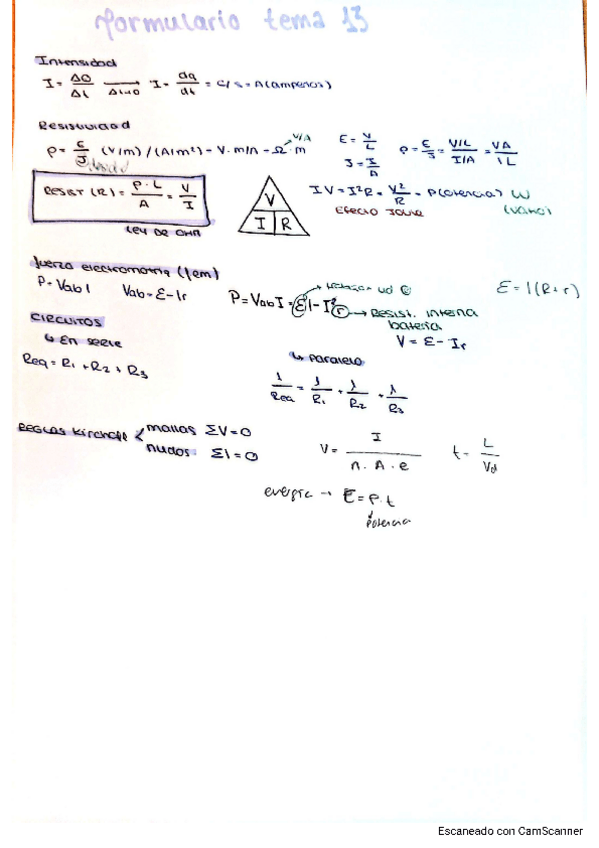 formulario tema 13
Intensidad
I = ΔQ/Δt → Δt→0 I = dq/dt = C/s = A (amperios)
Resistividad
ρ = E/J (V/m) / (A/m²) = V·m/A = Ω·m
V/A
E = V/L
J = I/A
ρ = E/J = V/L / I/A = VA/IL
RESIST (R) = ρ·L/A = V/I
LEY DE OHM
V
I R
IV = I²R = V²/R = P(otencia) W
EFECTO JOULE (Vatio)
fuerza electromotriz (fem)
P = Vab I Vab = ε - Ir
P = Vab I = εI - I²r → Resist. interna
batería
V = ε - Ir
ε = I(R+r)
CIRCUITOS
↳ En serie
Req = R1 + R2 + R3
↳ Paralelo
1/Req = 1/R1 + 1/R2 + 1/R3
REGLAS Kirchoff < mallas ΣV=0
nudos: ΣI=0
V = I / n.A.e
t = L/Vd
energía → E = P.t
potencia
Escaneado con CamScanner